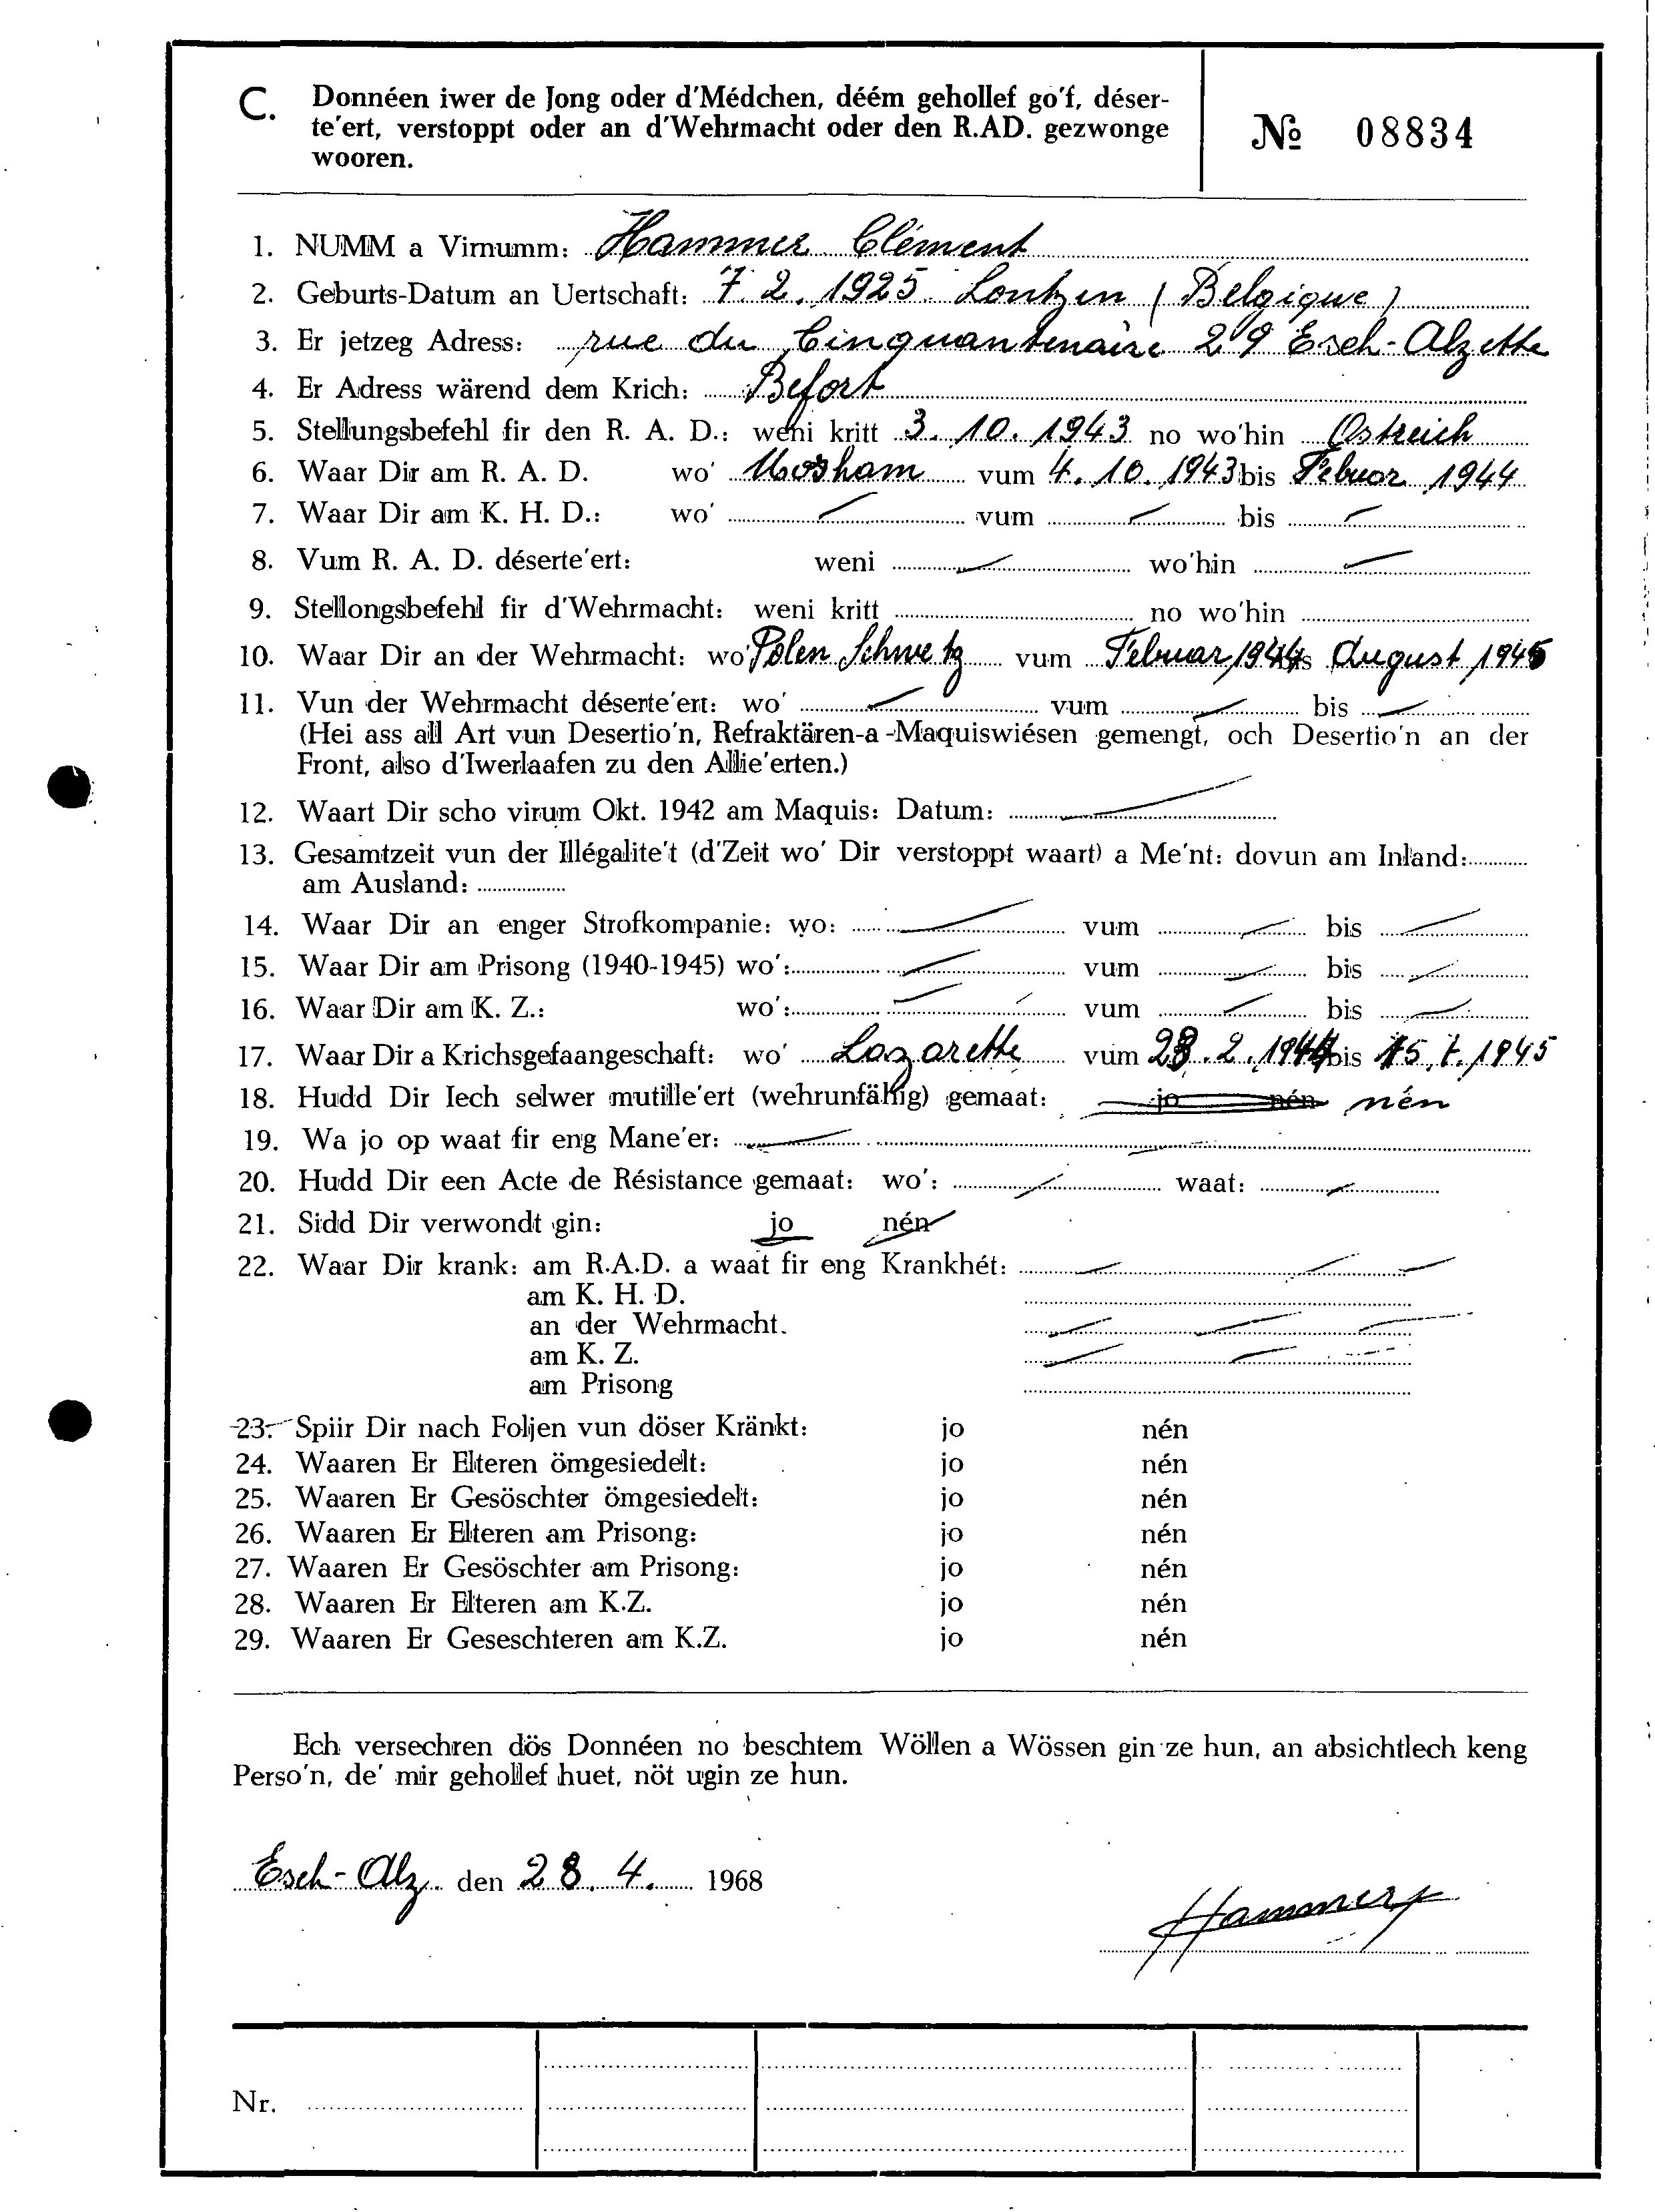 C. Donnéen iwer de Jong oder d'Médchen, déém gehollef go'f, déser-
te'ert, verstoppt oder an d'Wehrmacht oder den R.AD. gezwonge
wooren.
№ 08834
1. NUMM a Virnumm: Hammer Clément
2. Geburts-Datum an Uertschaft: 7. 2. 1925. Lontzen (Belgique)
3. Er jetzeg Adress: rue du Cinquantenaire 29 Esch-Alzette
4. Er Adress wärend dem Krich: Befort
5. Stellungsbefehl fir den R. A. D.: weni kritt 3. 10. 1943 no wo'hin Ostreich
6. Waar Dir am R. A. D. wo' Mosham vum 4. 10. 1943 bis Februar 1944
7. Waar Dir am K. H. D.: wo' vum bis
8. Vum R. A. D. déserte'ert: weni wo'hin
9. Stellongsbefehl fir d'Wehrmacht: weni kritt no wo'hin
10. Waar Dir an der Wehrmacht: wo' Polen Schwetz vum Februar 1944 bis August 1945
11. Vun der Wehrmacht déserte'ert: wo' vum bis
(Hei ass all Art vun Desertio'n, Refraktären-a-Maquiswiésen gemengt, och Desertio'n an der
Front, also d'Iwerlaafen zu den Allie'erten.)
12. Waart Dir scho virum Okt. 1942 am Maquis: Datum:
13. Gesamtzeit vun der Illégalite't (d'Zeit wo' Dir verstoppt waart) a Me'nt: dovun am Inland:
am Ausland:
14. Waar Dir an enger Strofkompanie: wo: vum bis
15. Waar Dir am Prisong (1940-1945) wo': vum bis
16. Waar Dir am K. Z.: wo': vum bis
17. Waar Dir a Krichsgefaangeschaft: wo' Lazarette vum 28. 2. 1944 bis 15. 7. 1945
18. Hudd Dir Iech selwer mutille'ert (wehrunfählig) gemaat: jo nén nén
19. Wa jo op waat fir eng Mane'er:
20. Hudd Dir een Acte de Résistance gemaat: wo': waat:
21. Sidd Dir verwondt gin: jo nén
22. Waar Dir krank: am R.A.D. a waat fir eng Krankhét:
am K. H. D.
an der Wehrmacht.
am K. Z.
am Prisong
23. Spiir Dir nach Foljen vun döser Kränkt: jo nén
24. Waaren Er Elteren ömgesiedelt: jo nén
25. Waaren Er Gesöschter ömgesiedelt: jo nén
26. Waaren Er Elteren am Prisong: jo nén
27. Waaren Er Gesöschter am Prisong: jo nén
28. Waaren Er Elteren am K.Z. jo nén
29. Waaren Er Geseschteren am K.Z. jo nén
Ech versechren dös Donnéen no beschtem Wöllen a Wössen gin ze hun, an absichtlech keng
Perso'n, de' mir gehollef huet, nöt ugin ze hun.
Esch-Alz. den 28. 4. 1968
Hammer
Nr.